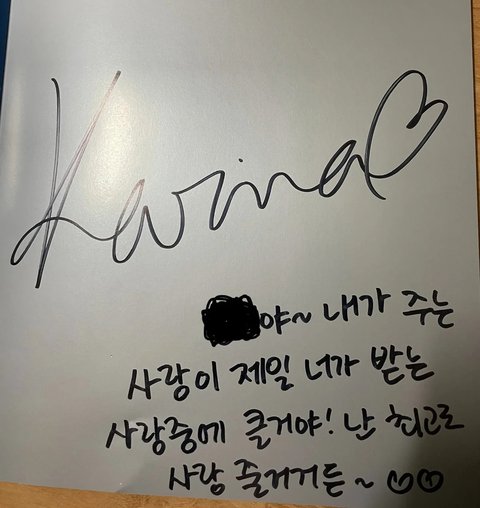 Karina♡
야~ 내가 주는
사랑이 제일 너가 받는
사랑중에 클거야! 난 최고로
사랑 즐거거든~ ♡♡